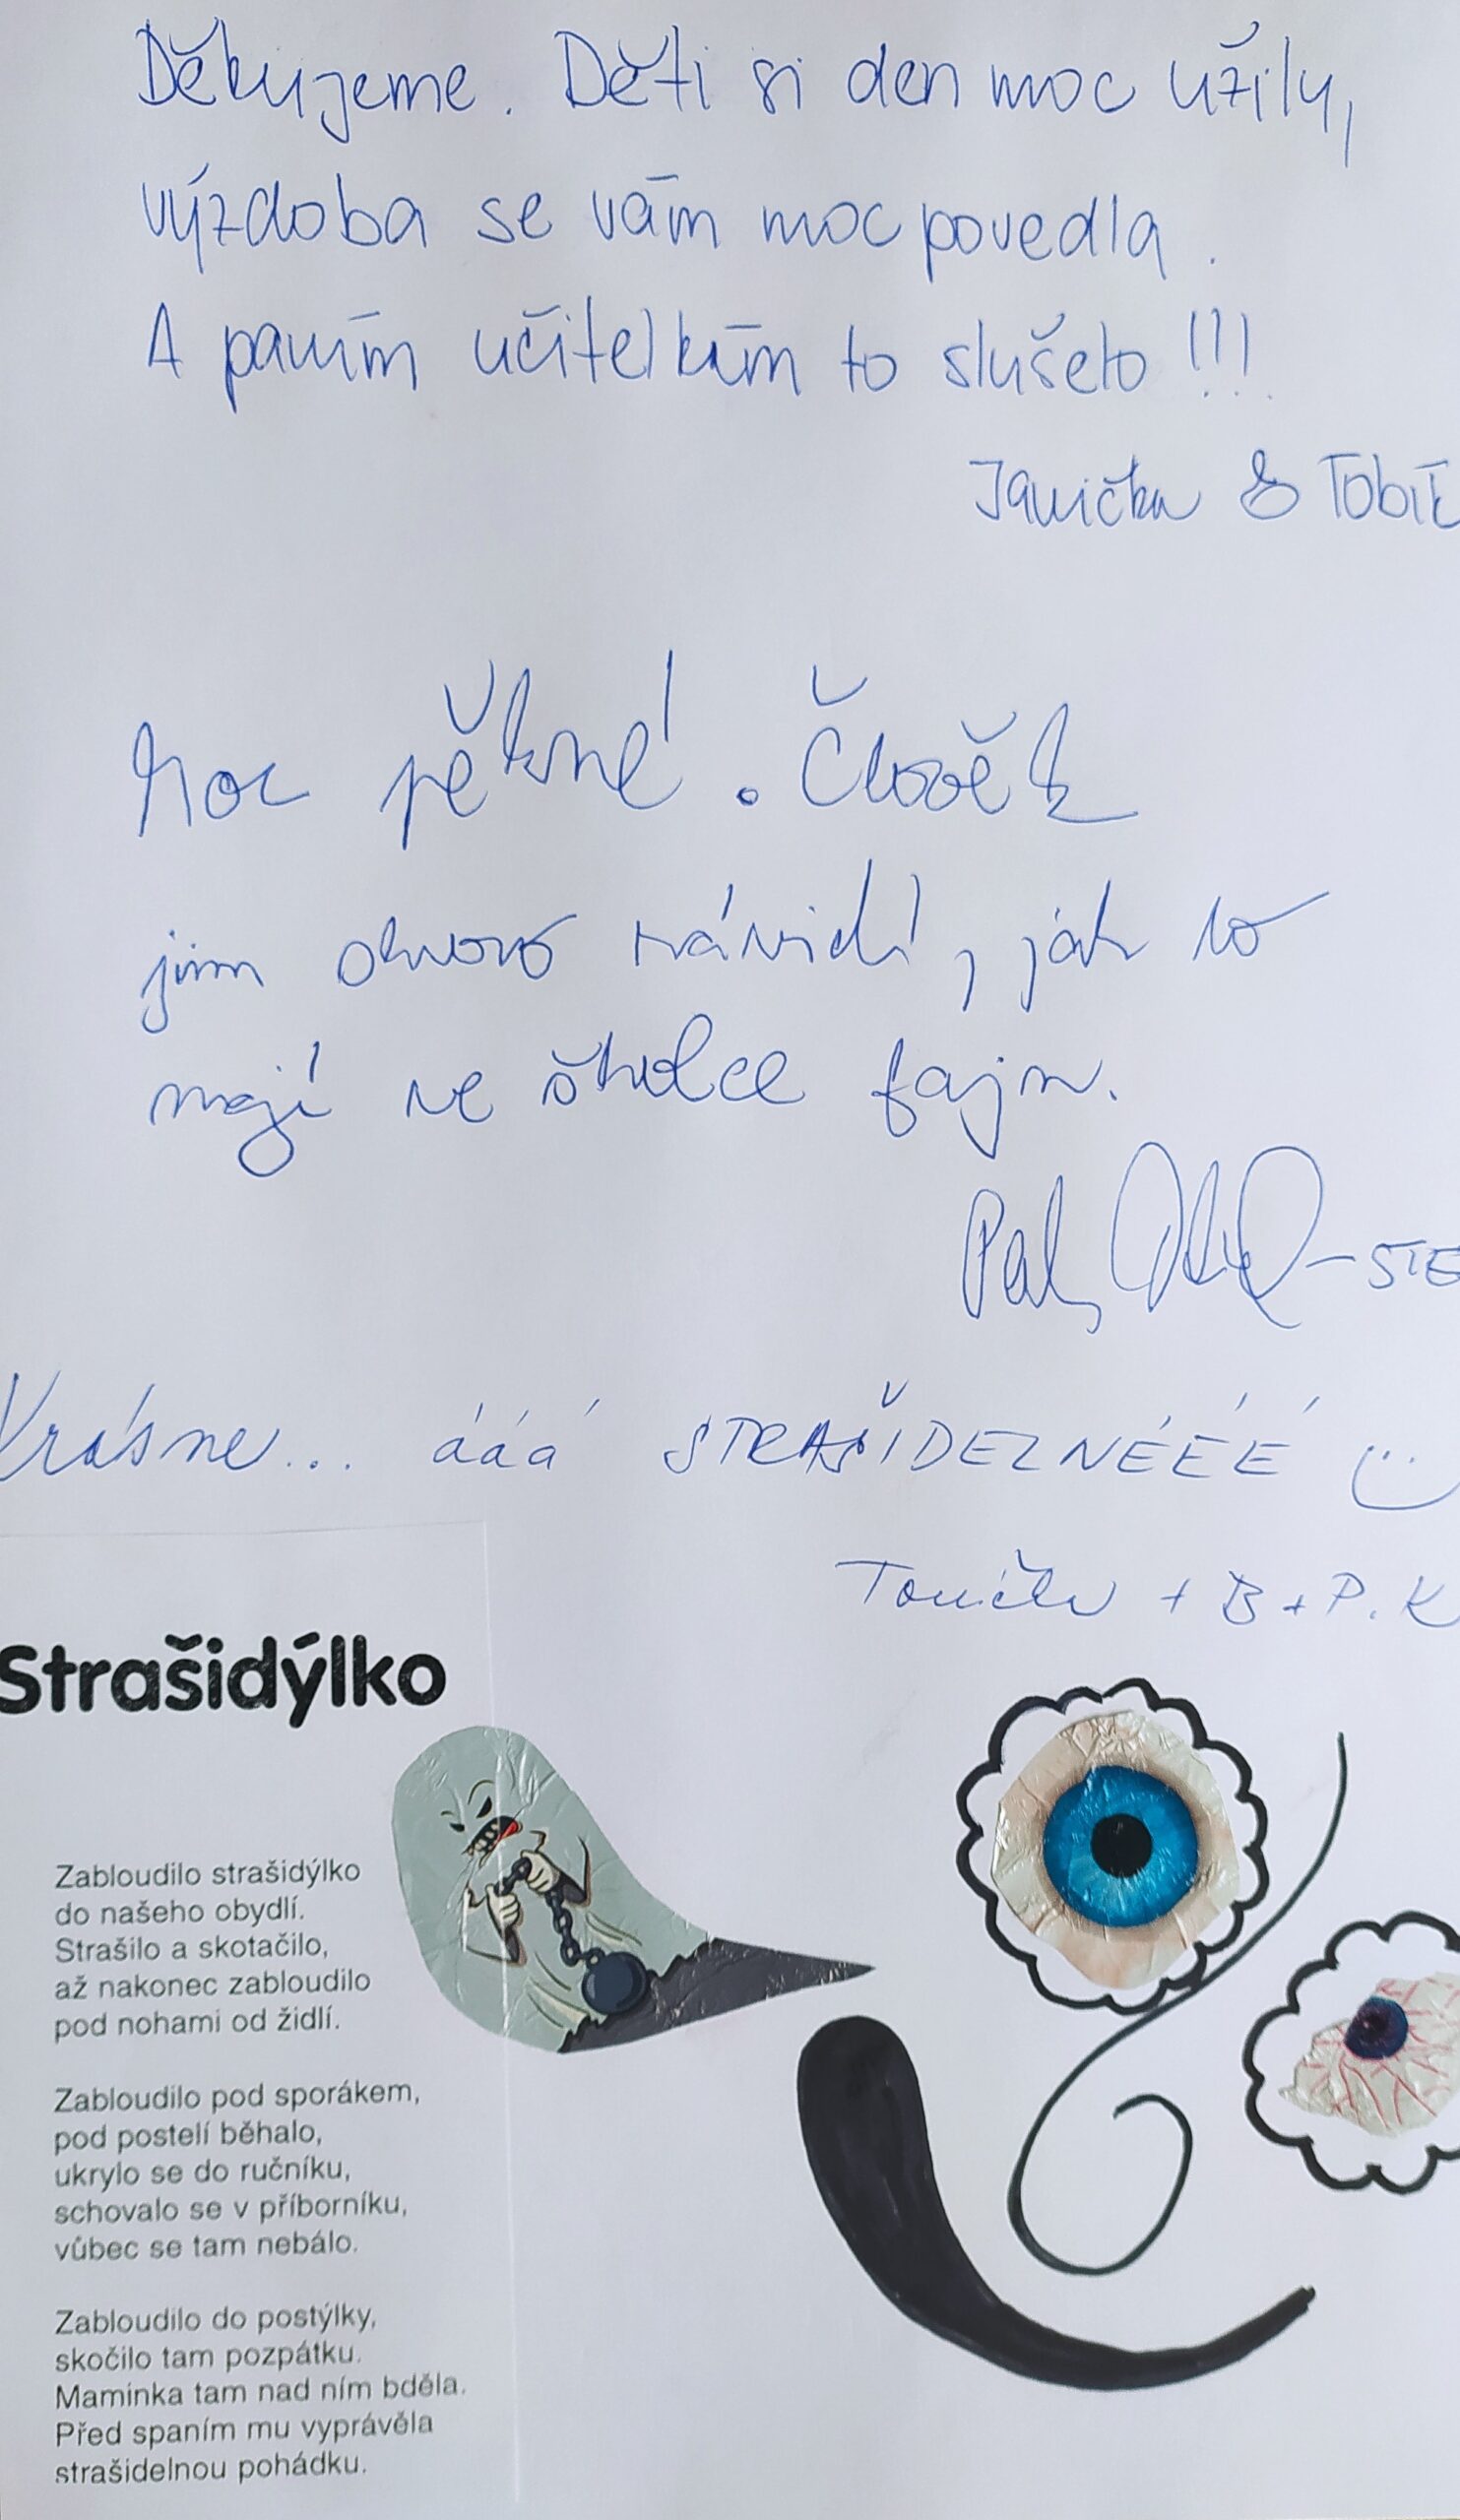 Děkujeme. Děti si den moc užily,
výzdoba se vám moc povedla.
A paním učitelkám to slušelo!!!
Janička & Tobi
Moc pěkné. Člověk
jim skoro závidí, jak to
mají ve školce fajn.
Krásne... ááá STRAŠIDELNÉÉÉ
Tonička + B+P.K
Strašidýlko
Zabloudilo strašidýlko
do našeho obydlí.
Strašilo a skotačilo,
až nakonec zabloudilo
pod nohami od židlí.
Zabloudilo pod sporákem,
pod postelí běhalo,
ukrylo se do ručníku,
schovalo se v příborníku,
vůbec se tam nebálo.
Zabloudilo do postýlky,
skočilo tam pozpátku.
Maminka tam nad ním bděla.
Před spaním mu vyprávěla
strašidelnou pohádku.